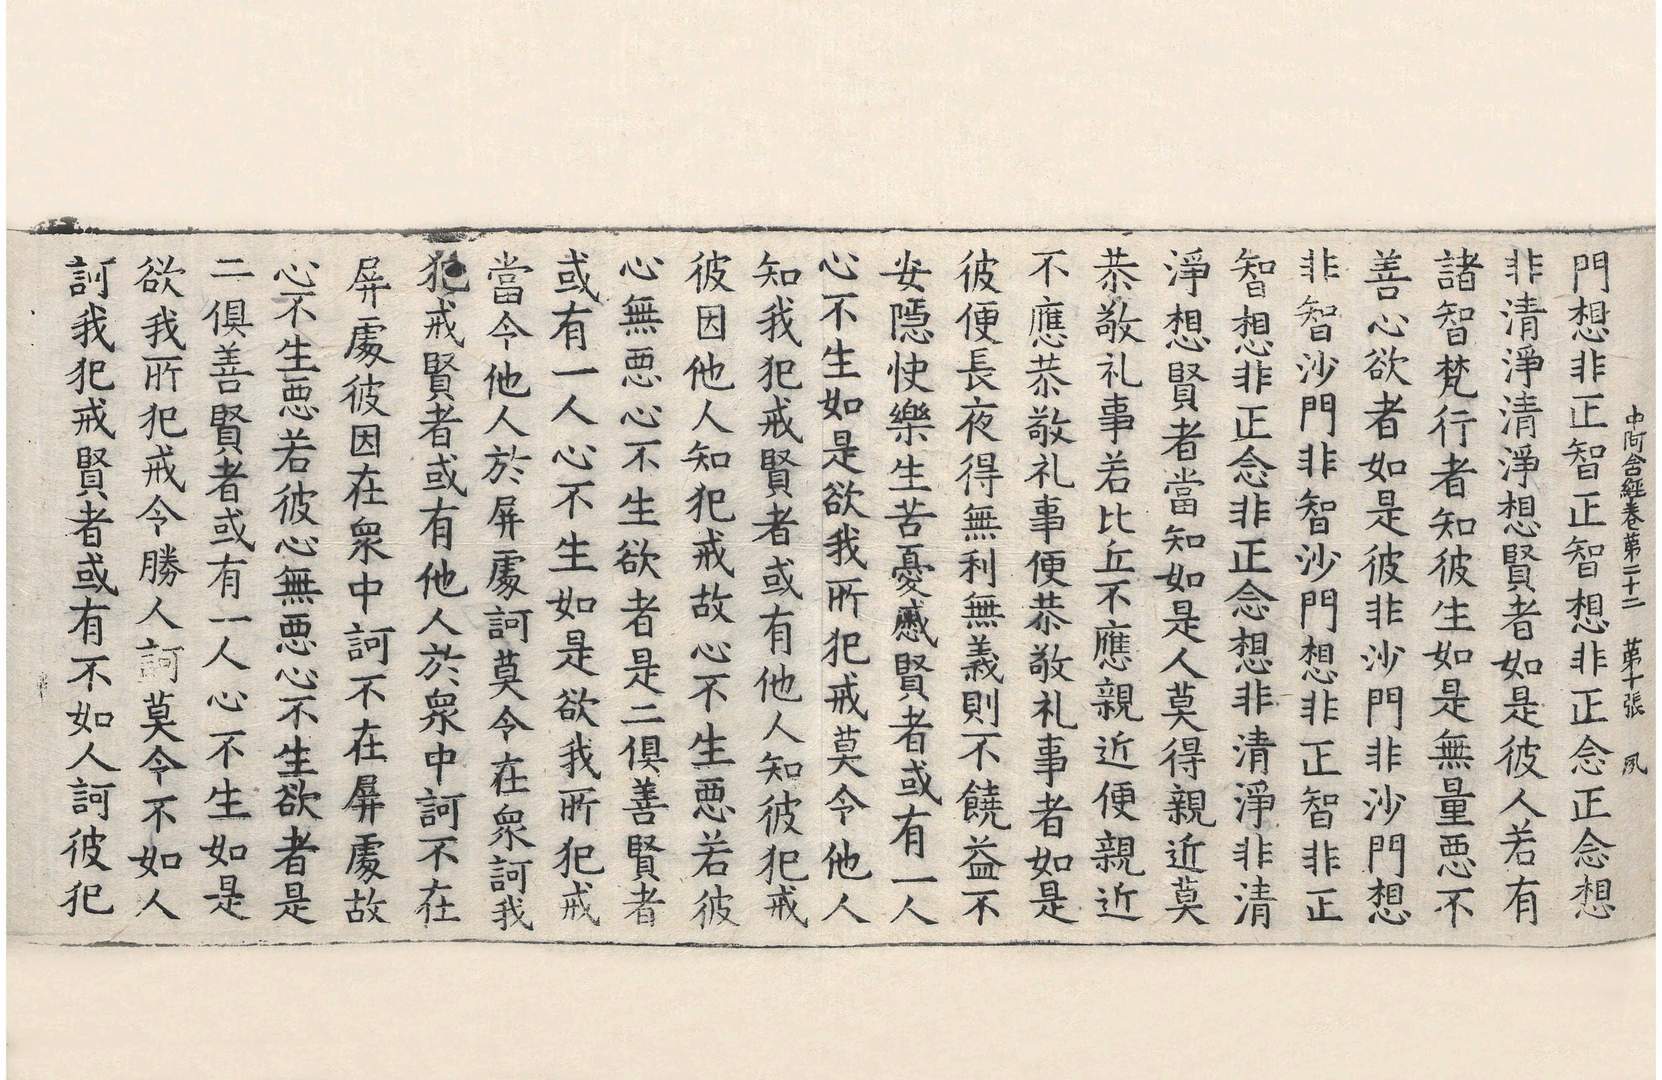 中阿含經卷第二十二　第十張　夙
門想非正智正智想非正念正念想
非清淨清淨想賢者如是彼人若有
諸智梵行者知彼生如是無量恶不
善心欲者如是彼非沙門非沙門想
非智沙門非智沙門想非正智非正
智想非正念非正念想非清淨非清
淨想賢者當知如是人莫得親近莫
恭敬礼事若比丘不應親近便親近
不應恭敬礼事便恭敬礼事者如是
彼便長夜得無利無義則不饒益不
安隱快樂生苦憂慼賢者或有一人
心不生如是欲我所犯戒莫令他人
知我犯戒賢者或有他人知彼犯戒
彼因他人知犯戒故心不生恶若彼
心無恶心不生欲者是二俱善賢者
或有一人心不生如是欲我所犯戒
當令他人於屏處訶莫令在衆訶我
犯戒賢者或有他人於衆中訶不在
屏處彼因在衆中訶不在屏處故
心不生恶若彼心無恶心不生欲者是
二俱善賢者或有一人心不生如是
欲我所犯戒令勝人訶莫令不如人
訶我犯戒賢者或有不如人訶彼犯